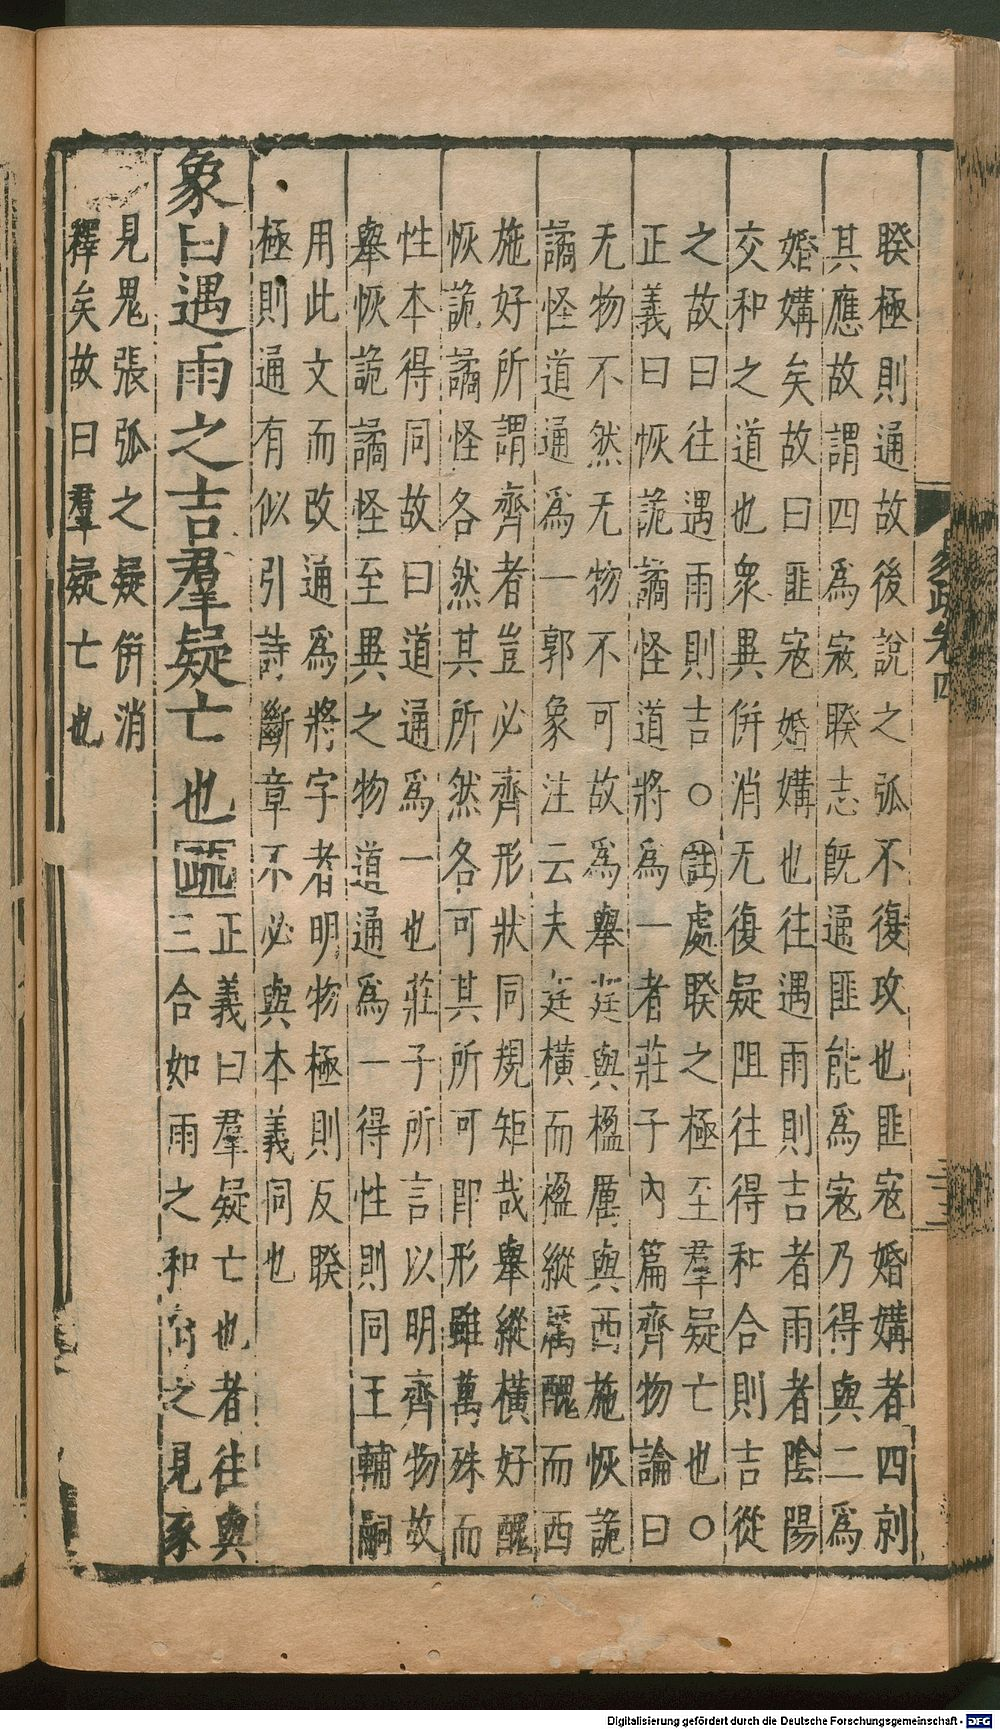 睽極則通故後說之弧不復攻也匪寇婚媾者四剠
其應故謂四爲寇睽志旣通匪能爲寇乃得與二爲
婚媾矣故曰匪寇婚媾也往遇雨則吉者雨者陰陽
交和之道也衆異併消无復疑阻往得和合則吉從
之故曰往遇雨則吉○註處睽之極至羣疑亡也○
正義曰恢詭譎怪道將爲一者莊子內篇齊物論曰
无物不然无物不可故爲舉莛與楹厲與西施恢詭
譎怪道通爲一郭象注云夫莛橫而楹縱厲醜而西
施好所謂齊者豈必齊形狀同規矩哉舉縱橫好醜
恢詭譎怪各然其所然各可其所可即形雖萬殊而
性本得同故曰道通爲一也莊子所言以明齊物故
舉恢詭譎怪至異之物道通爲一得性則同王輔嗣
用此文而改通爲將字者明物極則反睽
極則通有似引詩斷章不必與本義同也
象曰遇雨之吉羣疑亡也疏
正義曰羣疑亡也者往與
三合如雨之和向之見豕
見鬼張弧之疑併消
釋矣故曰羣疑亡也
易疏卷四
Digitalisierung gefördert durch die Deutsche Forschungsgemeinschaft - DFG